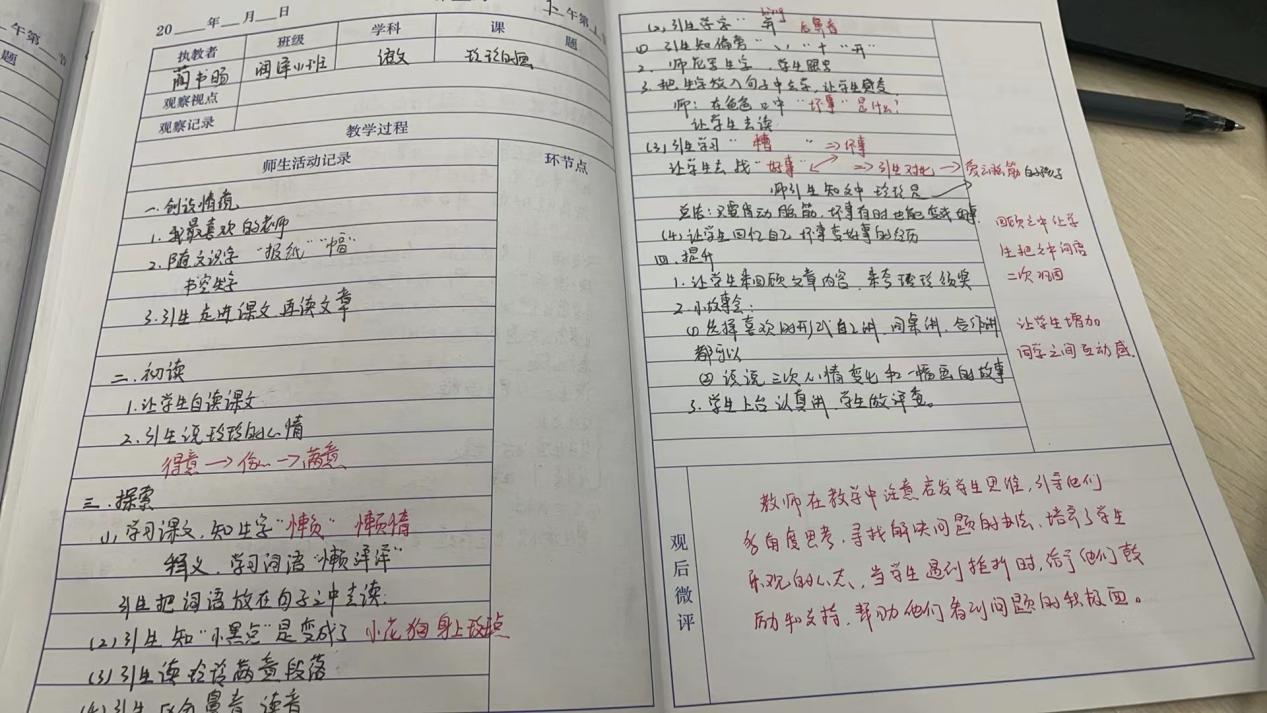 20 年 月 日
午第
执教者 班级 学科 课 题
闰泽小班 语文 玲玲的画
观察视点
观察记录
教学过程
师生活动记录 环节点
一.创设情境
1.我最喜欢的老师
2.随文识字 “报纸”“幅”
书空生字
3.引生走进课文 再读文章
二.初读
1.让学生自读课文
2.引生说玲玲的心情
得意→伤心→满意
三.探索
(1)学习课文,知生字“懒” 懒惰
释义,学习词语“懒洋洋”
引生把词语放在句子之中去读.
(2)引生知“小黑点”是变成了 小花狗身上
(3)引生读玲玲满意段落
(4)引生区分 鼻音 读音
(2)引生学字“弄” 后鼻音
引生知偏旁
2.师范写生字,学生跟写
3.把生字放入句子中去读,让学生感受
师:在爸爸口中“坏事”是什么?
让学生去读
(3)引生学习“糟” ⇒坏事
让学生去找“好事” ⇒引生对比→爱动脑筋的孩子
师引生知文中玲玲是
总结:只要肯动脑筋,坏事有时也能变成好事.
(4)让学生回忆自己坏事变好事的经历
四.提升
1.让学生来回顾文章内容,来夸玲玲
2.小故事会:
(1)选择喜欢的形式自己讲,同桌讲,合作讲
都可以
(2)说说三次心情变化和一幅画的故事
3.学生上台认真讲 学生做评委。
回顾文中让学
生把文中词语
二次巩固
让学生增加
同学之间互动感.
观后微评
教师在教学中注意启发学生思维,引导他们
多角度思考,寻找解决问题的办法,培养了学生
乐观的心态,当学生遇到挫折时,给予他们鼓
励和支持,帮助他们看到问题的积极面。